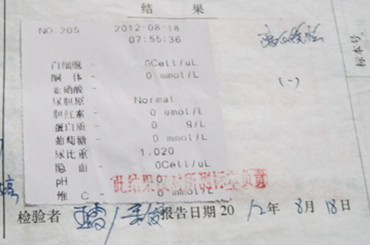 结 果
NO.205 2012-08-18
07:55:36
白细胞 - 0Cell/uL
酮体 - 0 mmol/L
亚硝酸 -
尿胆原 Normal
胆红素 - 0 umol/L
蛋白质 - 0 g/L
葡萄糖 - 0 mmol/L
尿比重 1.020
隐血 - 0Cell/uL
pH
维 C - 0 mmol/L
(-)
标本号
此结果仅对所测标本负责
检验者 报告日期 20 12 年 8 月 18 日